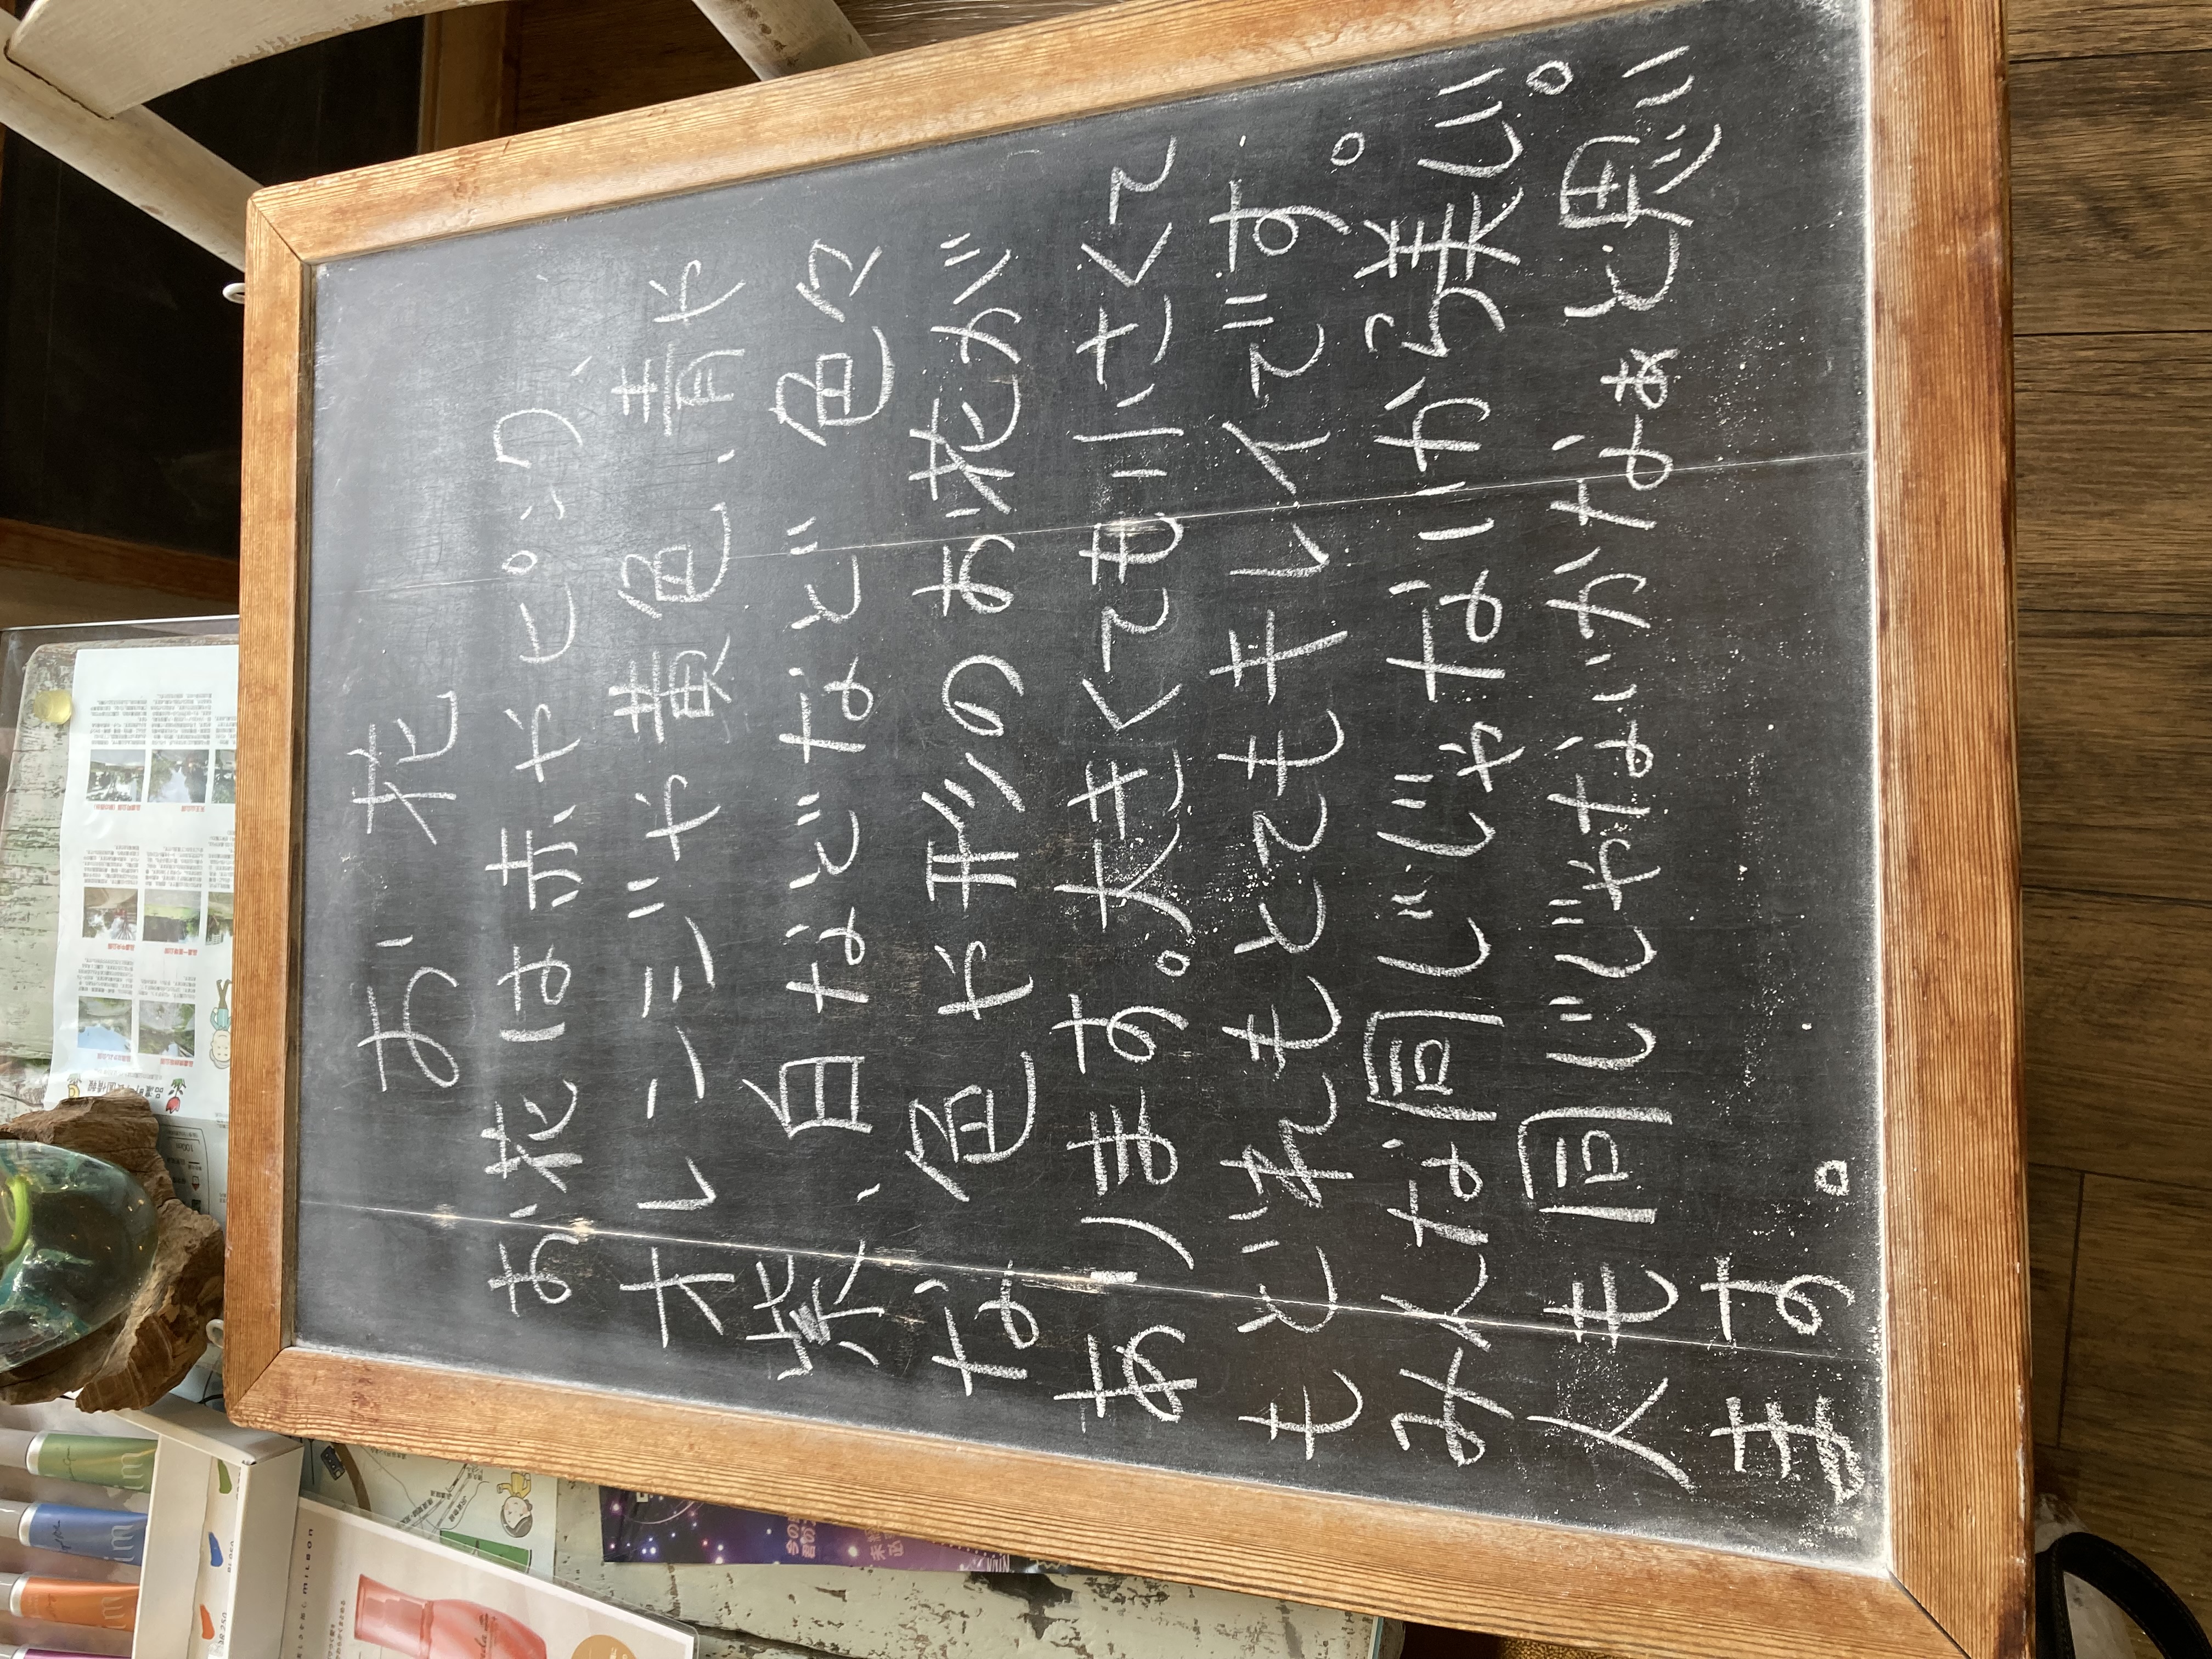 お花
お花は赤やピンク、
オレンジや黄色、青や
紫、白などなど 色々
な色や形のお花が
あります。大きくても小さくて
もどれもとてもキレイです。
みんな同じじゃないから楽しい。
人も同じじゃないかなぁと思い
ます。
MILBON